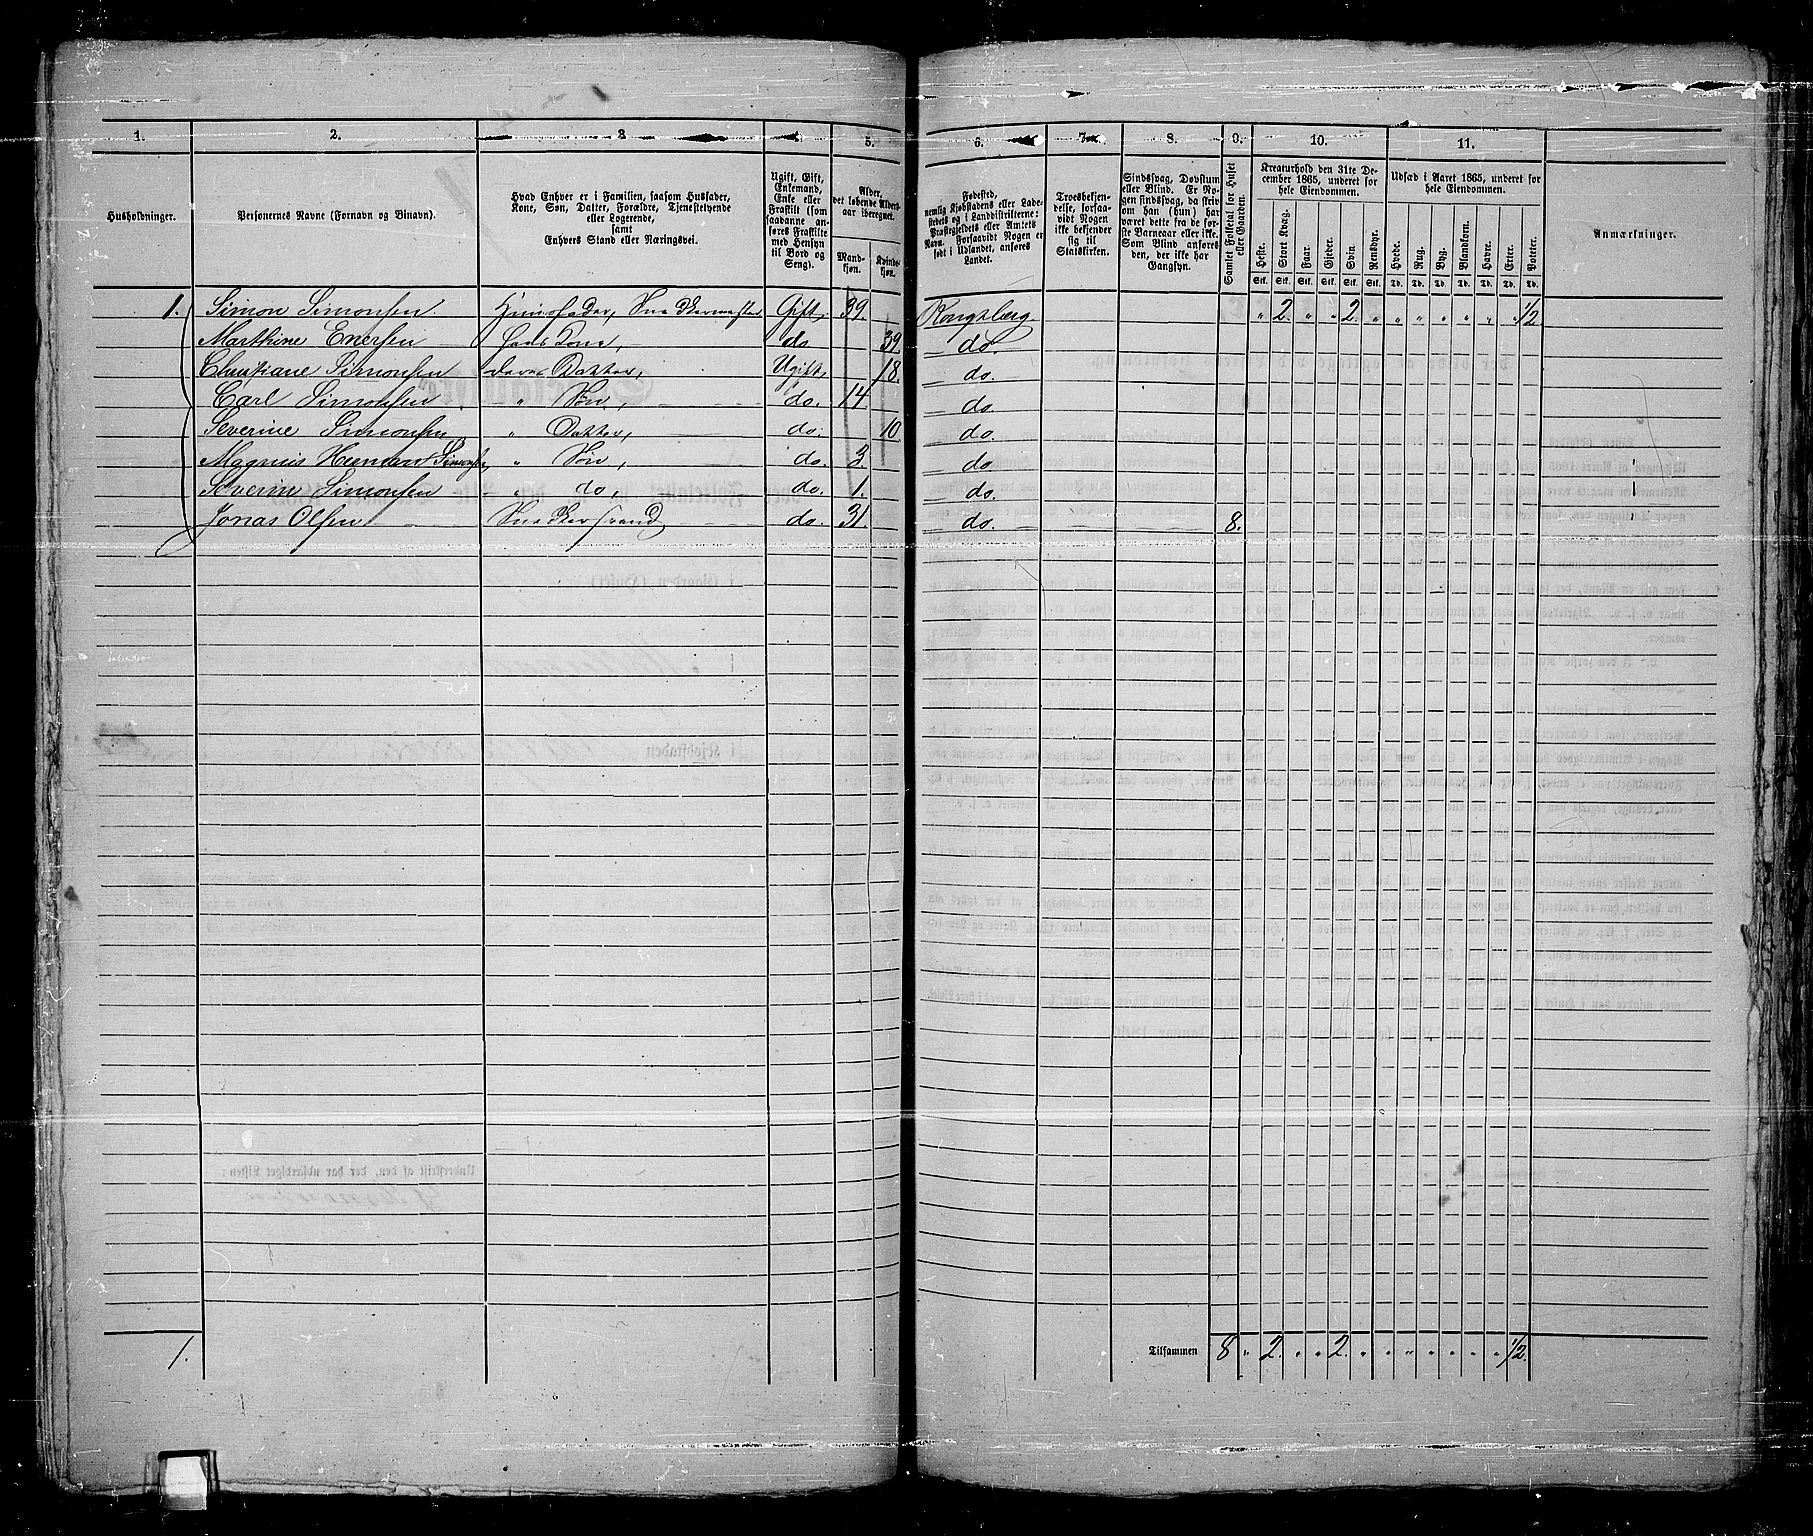 1. 2. 3 4. 5. 6. 7. 8. 9. 10. 11.
Husholdninger.
Personernes Navne (Fornavn og Binavn).
Hvad Enhver er i Familien, saasom Husfader,
Kone, Søn, Datter, Forældre, Tjenestetyende
eller Logerende,
samt
Enhvers Stand eller Næringsvei.
Ugift, Gift,
Enkemand,
Enke eller
Fraskilt (som
saadanne an-
føres Fraskilte
med Hensyn
til Bord og
Seng).
Alder,
det løbende Alders-
aar iberegnet.
Mand-
kjøn.
Kvind-
kjøn.
Fødested,
nemlig Kjøbstadens eller Lade-
stedets og i Landdistrikterne:
Præstegjeldets eller Amtets
Navn. Forsaavidt Nogen er
født i Udlandet, anføres
Landet.
Troesbekjen-
delse, forsaa-
vidt Nogen
ikke bekjender
sig til
Statskirken.
Sindssvag, Døvstum
eller Blind. Er No-
gen sindssvag, da skriv
om han (hun) har
været dette fra de før-
ste Barneaar eller ikke.
Som Blind anføres
den, der ikke har
Gangsyn.
Samlet Folketal for Huset
eller Gaarden.
Kreaturhold den 31te De-
cember 1865, underet for
hele Eiendommen.
Heste. Stort Kvæg. Faar. Gjeder. Svin. Rensdyr.
Stk. Stk. Stk. Stk. Stk. Stk.
Udsæd i Aaret 1865, underet for
hele Eiendommen.
Hvede. Rug. Byg. Blandkorn. Havre. Erter. Potter.
Td. Td. Td. Td. Td. Td. Td.
Anmærkninger.
1. Simon Simonsen. Huusfader, Snedkermester Gift, 39. Kongsberg. " 2. " " 2. " " " " " " " 1/2
Marthine Enersen hans Kone, do 39. do.
Christiane Simonsen deres Datter, Ugift, 18. do.
Carl Simonsen " Søn, do. 14. do.
Severine Simonsen " Datter, do. 10 do.
Magnus Herman Simonsen " Søn, do. 3. do.
Severin Simonsen " do, do. 1. do.
Jonas Olsen Snedkersvend do. 31. do. 8.
1. Tilsammen 8 " 2. " " 2. " " " " " " " 1/2.